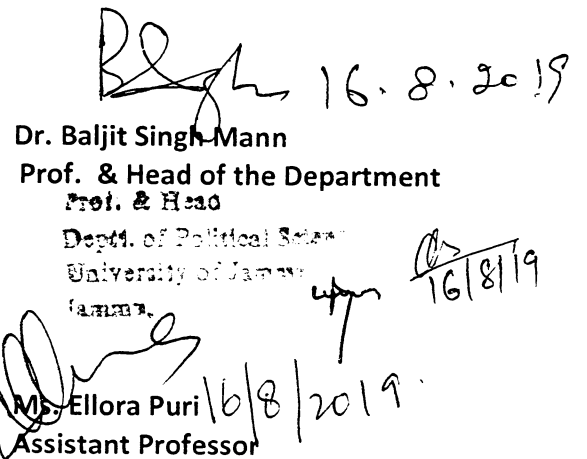 16.8.2019
Dr. Baljit Singh Mann
Prof. & Head of the Department
Prof. & Head
Deptt. of Political Scien
University of Jammu
Jammu.
16/8/19
Ms. Ellora Puri 16/8/2019.
Assistant Professor